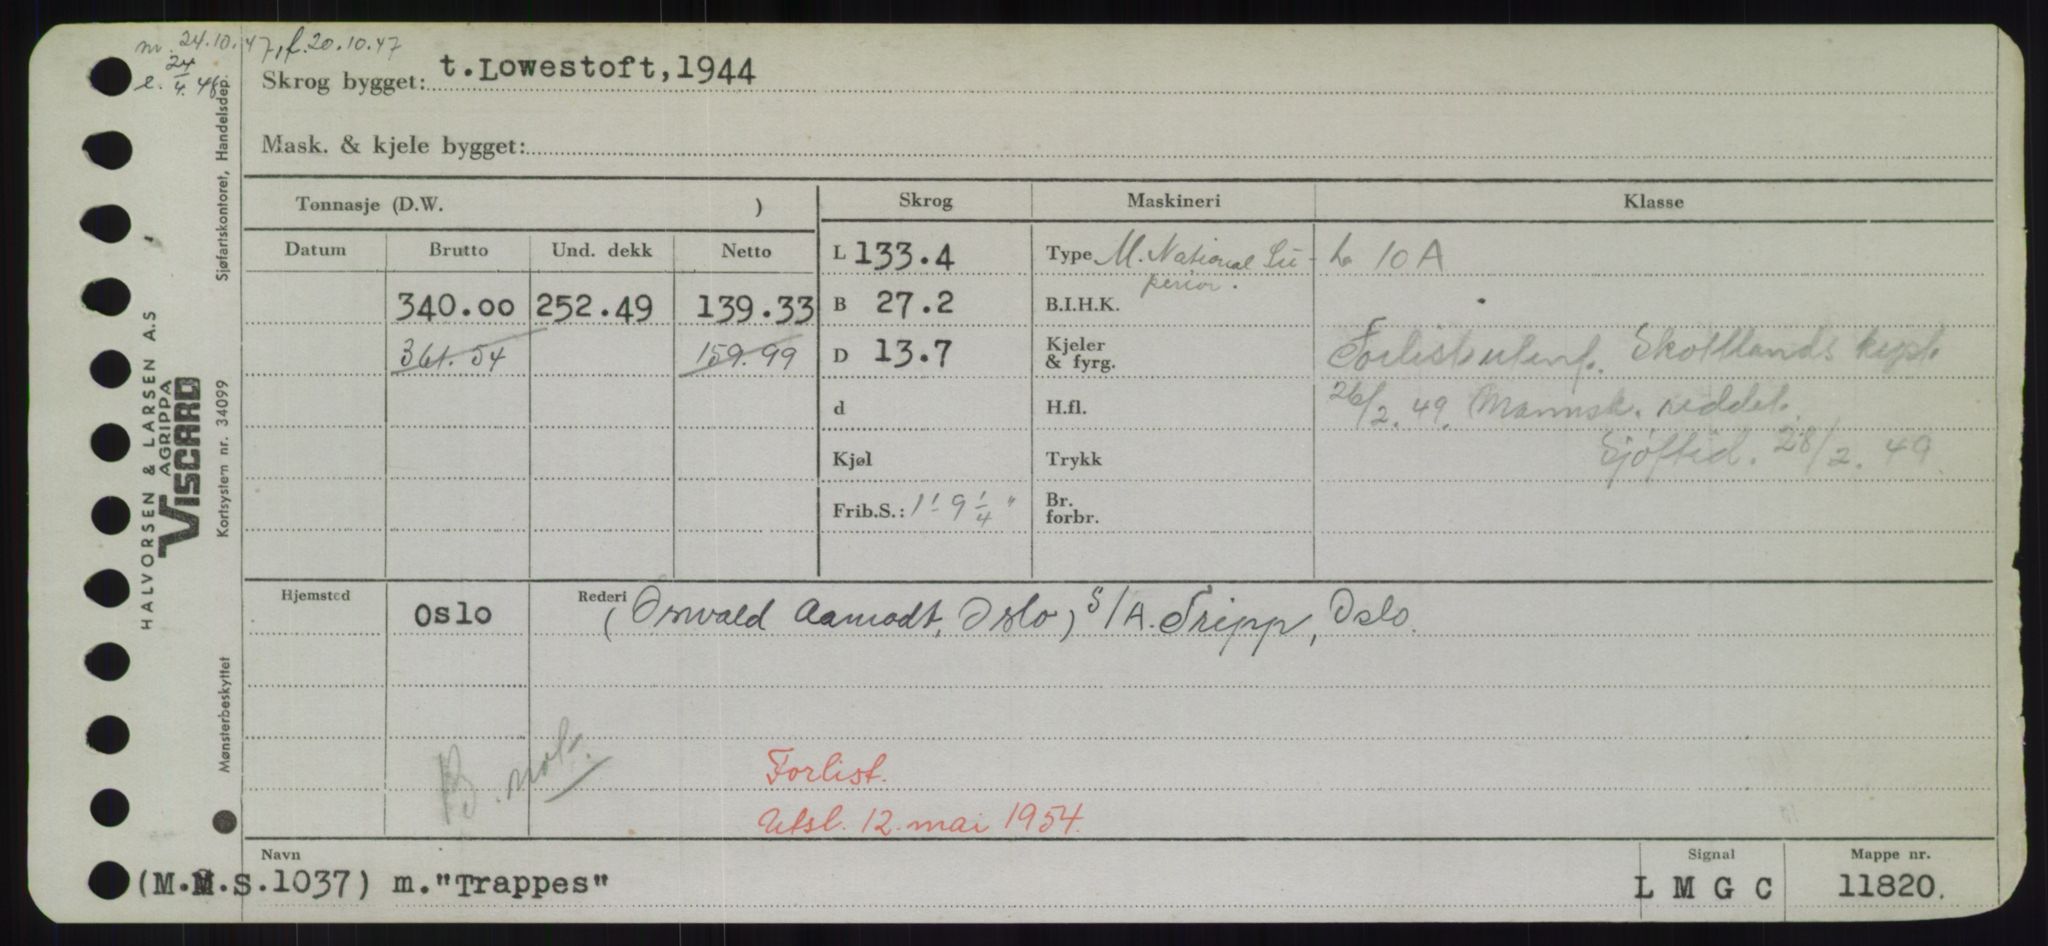 m. 24.10.47, f. 20.10.47
e. 24/4. 48
Skrog bygget: t. Lowestoft, 1944
Mask. & kjele bygget:
Tonnasje (D.W. )
Skrog
Maskineri
Klasse
Datum
Brutto
Und. dekk
Netto
L 133.4
Type M. National Su-
perior.
L 10 A
340.00 252.49 139.33
B 27.2
B.I.H.K.
361.54 159.99
D 13.7
Kjeler
& fyrg.
Forlist utenf. Skottlands kyst.
d
H.fl.
26/2. 49. Mannsk. reddet.
Kjøl
Trykk
Sjøftid. 28/2. 49
Frib.S.: 1' 9 1/4 "
Br.
forbr.
Hjemsted
Oslo
Rederi
(Osvald Aamodt, Oslo) S/A. Tripp, Oslo.
B. not.
Forlist.
Utsl. 12. mai 1954.
Navn
(M.M.S.1037) m."Trappes"
Signal
L M G C
Mappe nr.
11820.
HALVORSEN & LARSEN A.S
AGRIPPA
VISCARD
Sjøfartskontoret, Handelsdep.
Kortsystem nr. 34099
Mønsterbeskyttet